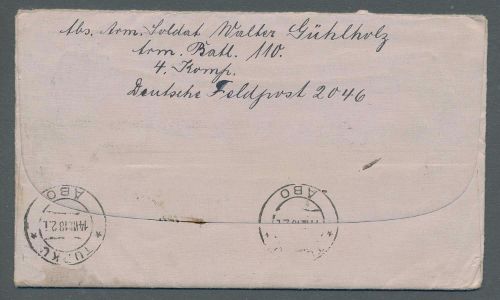 Abs. Arm. Soldat Walter Gühlholz
Arm. Batl. 110.
4. Komp.
Deutsche Feldpost 2046
ÅBO
TURKU
ÅBO